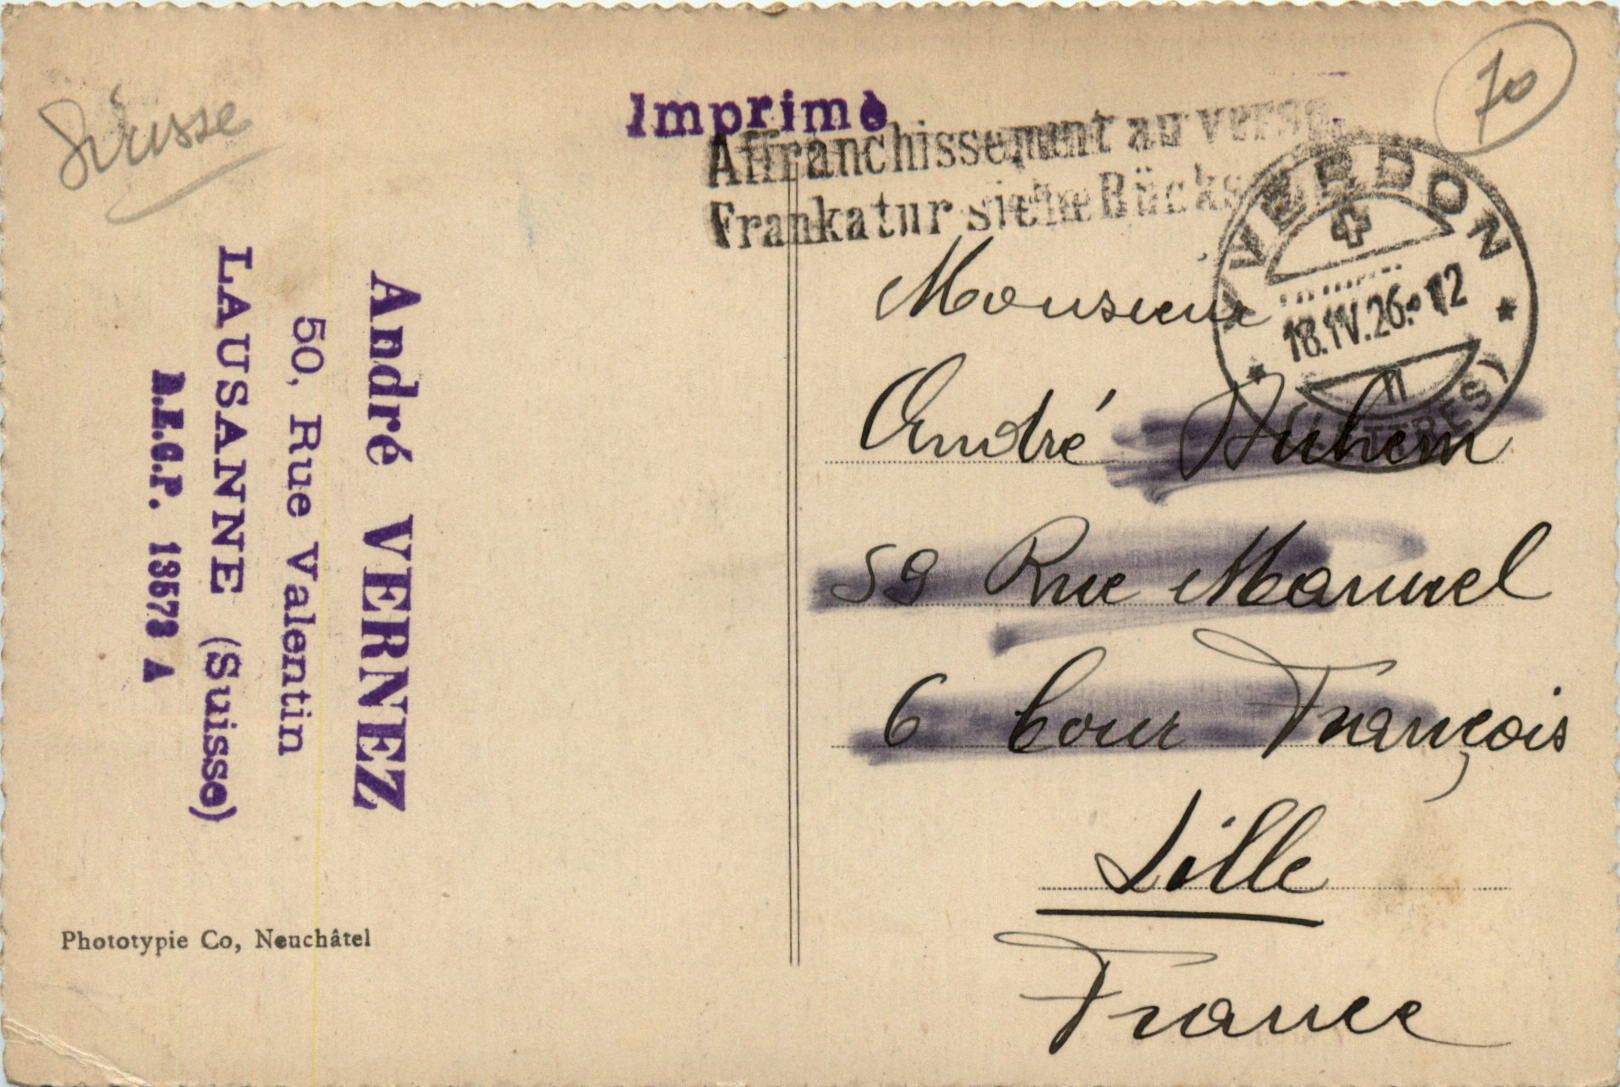 Suisse
70
Imprimé
Affranchissement au verso.
Frankatur siehe Rücks
YVERDON
18.IV.26.-12
II
(LETTRES)
Monsieur
André
59 Rue Manuel
6 Cour François
Lille
France
André VERNEZ
50, Rue Valentin
LAUSANNE (Suisse)
Phototypie Co, Neuchâtel